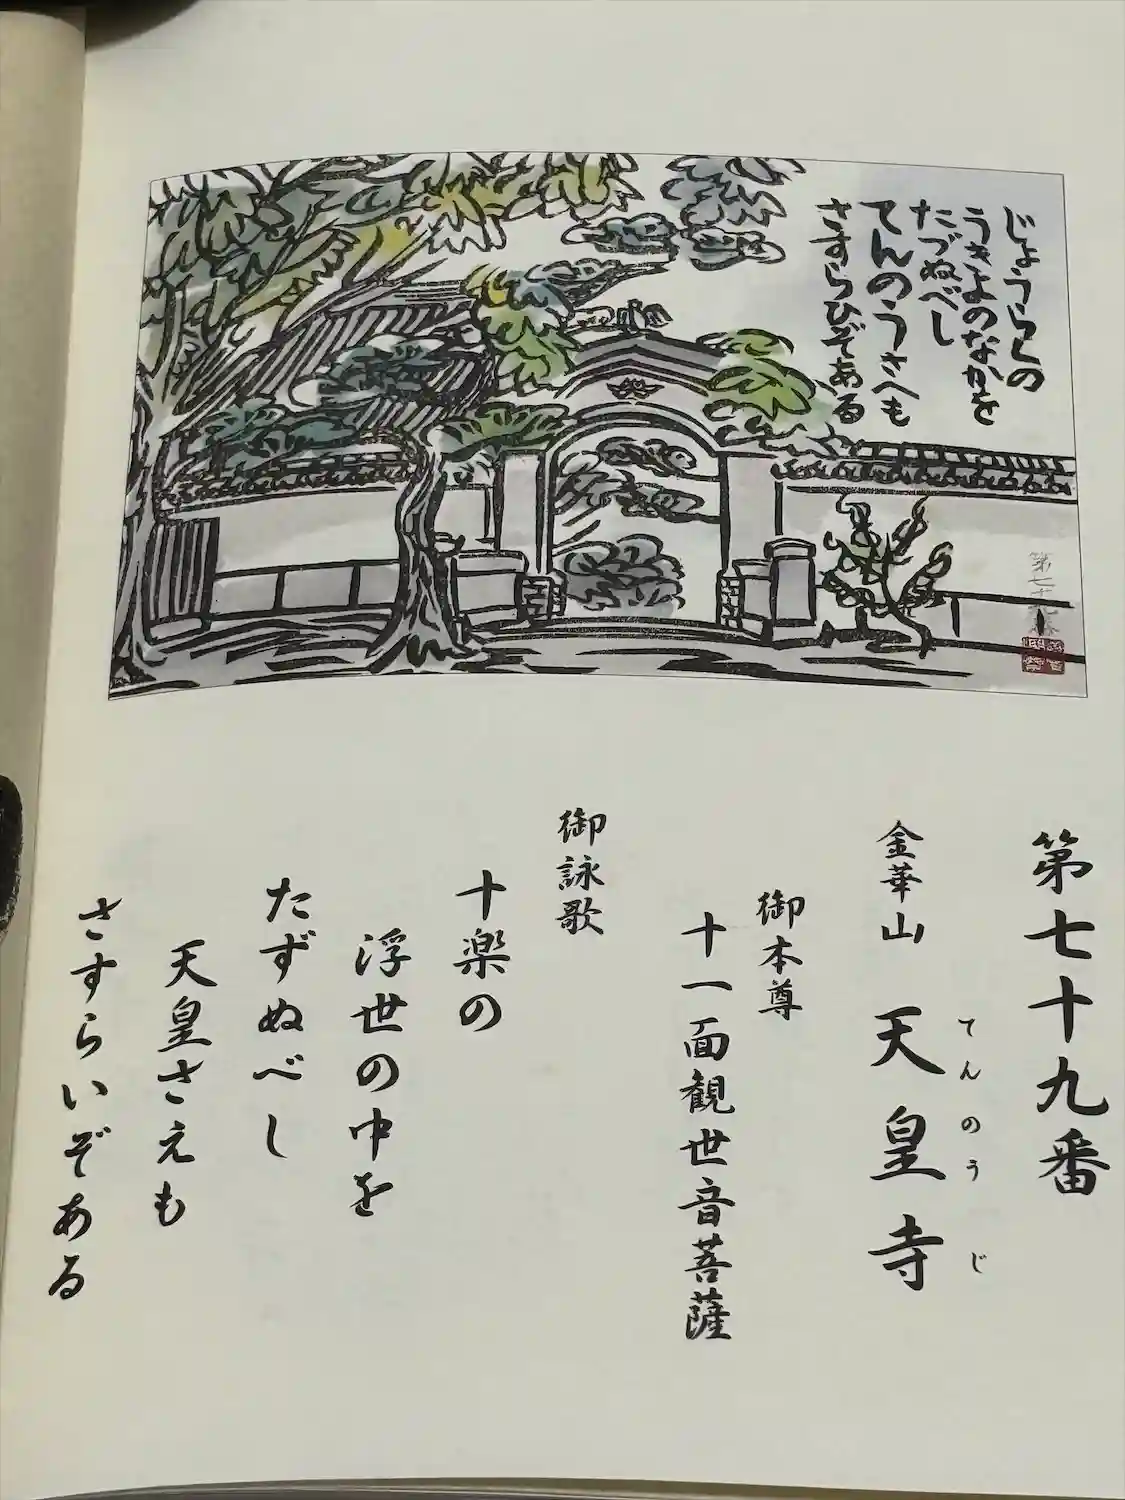 じょうらくの
うきよのなかを
たづねべし
てんのうさへも
さすらひぞある
第七十九番
第七十九番
金華山 天皇寺
てんのうじ
御本尊
十一面観世音菩薩
御詠歌
十楽の
浮世の中を
たずぬべし
天皇さえも
さすらいぞある